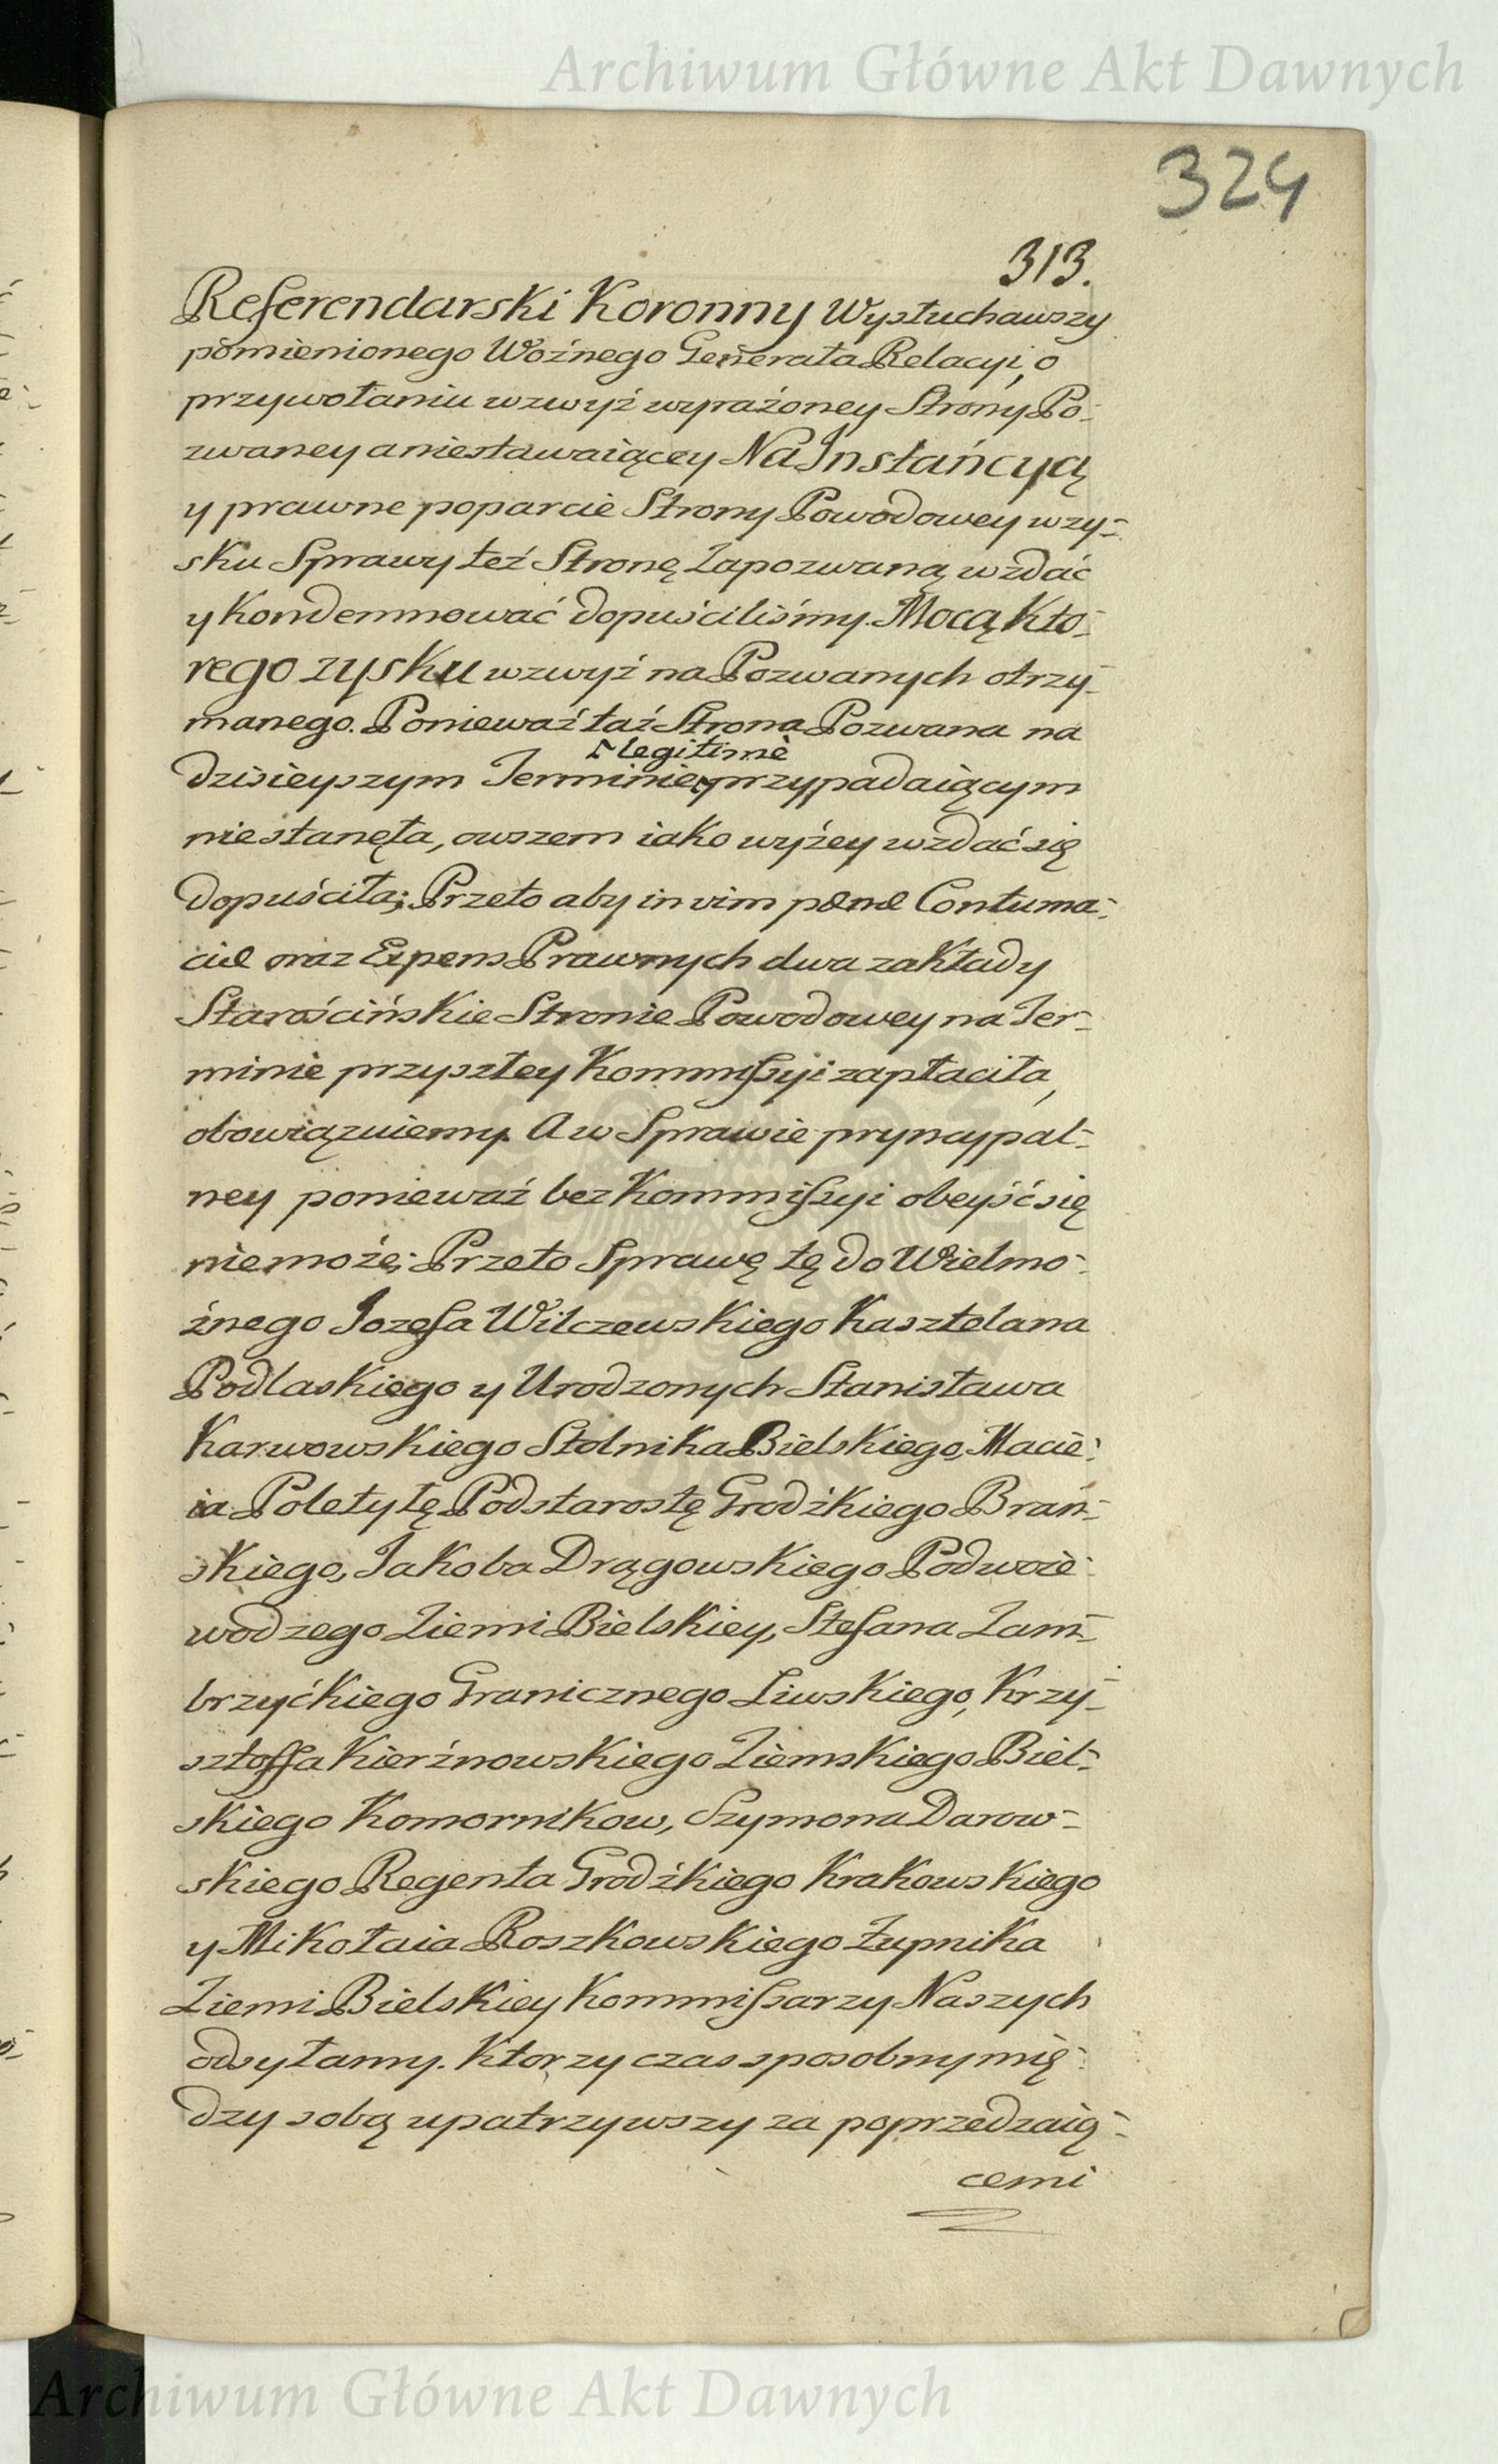 Archiwum Główne Akt Dawnych
324
313.
Referendarski Koronny Wysłuchawszy
pomienionego Woźnego Generała Relacyi, o
przywołaniu wzwyż wyrażoney Strony Po-
zwaney a niestawaiącey Na Instańcyą
y prawne poparcie Strony Powodowey w zy-
sku Sprawy też Stronę Zapozwaną wzdać
y Kondemnować dopuściliśmy. Mocą Kto-
rego zysku wzwyż na Pozwanych otrzy-
manego. Ponieważ taż Strona Pozwana na
legitimè
dzisieyszym Terminie przypadaiącym
niestanęła, owszem iako wyżey wzdać się
dopuściła; Przeto aby in vim pœnæ Contuma-
ciæ oraz Expens Prawnych dwa zakłady
Starościńskie Stronie Powodowey na Ter-
minie przyszłey Kommissyi zapłaciła,
obowiązuiemy. A w Sprawie pryncypal-
ney ponieważ bez Kommissyi obeyść się
niemoże; Przeto Sprawę tę do Wielmo-
żnego Jozefa Wilczewskiego Kasztelana
Podlaskiego y Urodzonych Stanisława
Karwowskiego Stolnika Bielskiego, Macie-
ia Poletyłę Podstarostę Grodzkiego Brań-
skiego, Jakoba Drągowskiego Podwoie-
wodzego Ziemi Bielskiey, Stefana Zam-
brzyckiego Granicznego Liwskiego, Krzy-
sztoffa Kierżnowskiego Ziemskiego Biel-
skiego Komornikow, Szymona Darow-
skiego Regenta Grodzkiego Krakowskiego
y Mikołaia Roszkowskiego Żupnika
Ziemi Bielskiey Kommissarzy Naszych
odsyłamy. Ktorzy czas sposobny mię-
dzy sobą upatrzywszy za poprzedzaią-
cemi
Archiwum Główne Akt Dawnych